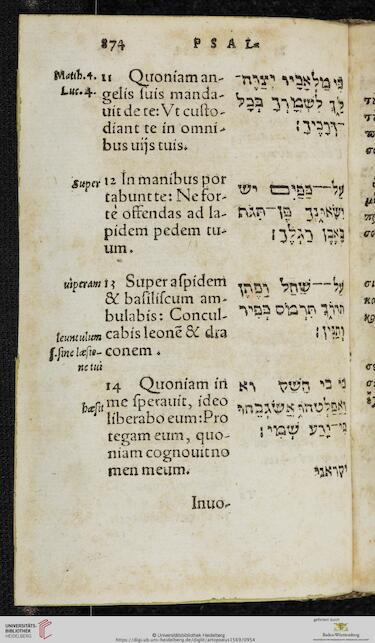 874 PSAL.
Matth. 4.
Luc. 4.
11 Quoniam an-
gelis suis manda-
uit de te: Vt custo-
diant te in omni-
bus uijs tuis.
כִּי מַלְאָכָיו יְצַוֶּה־
לָּךְ לִשְׁמָרְךָ בְּכָל
דְּרָכֶיךָ׃
super
12 In manibus por
tabunt te: Ne for-
te offendas ad la-
pidem pedem tu-
um.
עַל־כַּפַּיִם יש
יִשָּׂאוּנְךָ פֶּן־תִּגֹּף
בָּאֶבֶן רַגְלֶךָ׃
uiperam
leunculum
s. sine læsio-
ne tui
13 Super aspidem
& basiliscum am-
bulabis: Concul-
cabis leonē & dra
conem.
עַל־שַׁחַל וָפֶתֶן
תִּדְרֹךְ תִּרְמֹס כְּפִיר
וְתַנִּין׃
hæsit
14 Quoniam in
me sperauit, ideo
liberabo eum: Pro
tegam eum, quo-
niam cognouit no
men meum.
כִּי בִי חָשַׁק וא
וַאֲפַלְּטֵהוּ אֲשַׂגְּבֵהוּ
כִּי־יָדַע שְׁמִי׃
יקראני
Inuo-
UNIVERSITÄTS-
BIBLIOTHEK
HEIDELBERG
© Universitätsbibliothek Heidelberg
https://digi.ub.uni-heidelberg.de/diglit/artopoeus1569/0954
gefördert durch
Baden-Württemberg